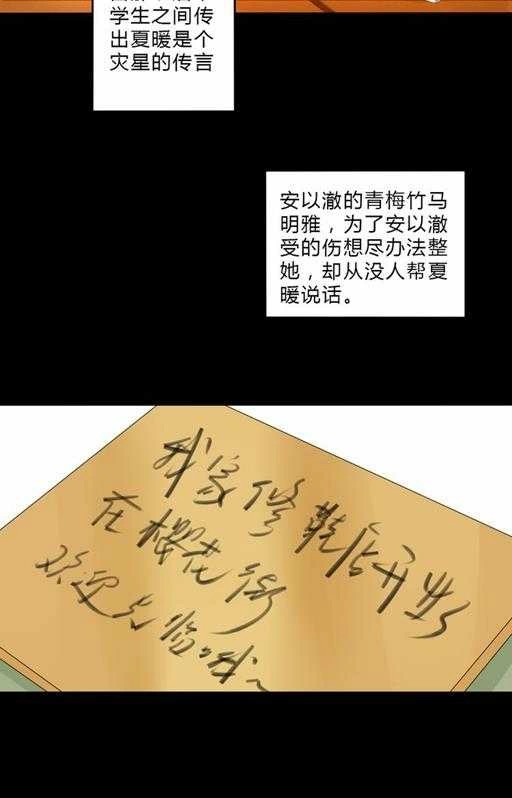 学生之间传
出夏暖是个
灾星的传言
安以澈的青梅竹马
明雅，为了安以澈
受的伤想尽办法整
她，却从没人帮夏
暖说话。
我家修鞋店开业
在樱花街
欢迎光临